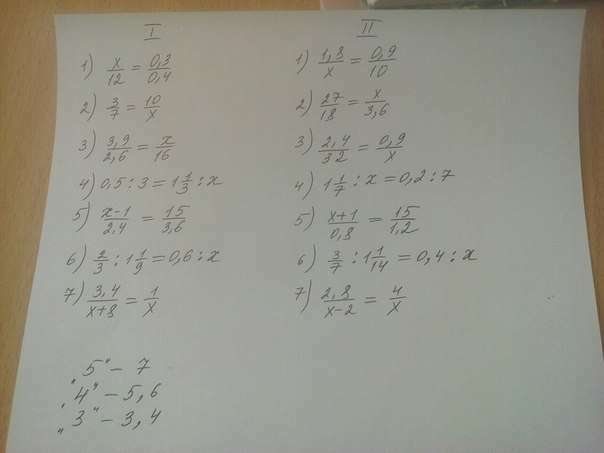 I
1) x/12 = 0,3/0,4
2) 3/7 = 10/x
3) 3,9/2,6 = x/16
4) 0,5 : 3 = 1 1/3 : x
5) x-1/2,4 = 15/3,6
6) 2/3 : 1 1/9 = 0,6 : x
7) 3,4/x+8 = 1/x
II
1) 1,8/x = 0,9/10
2) 27/18 = x/3,6
3) 2,4/32 = 0,9/x
4) 1 1/7 : x = 0,2 : 7
5) x+1/0,8 = 15/1,2
6) 3/7 : 1 1/14 = 0,4 : x
7) 2,8/x-2 = 4/x
„5" - 7
„4" - 5, 6
„3" - 3, 4